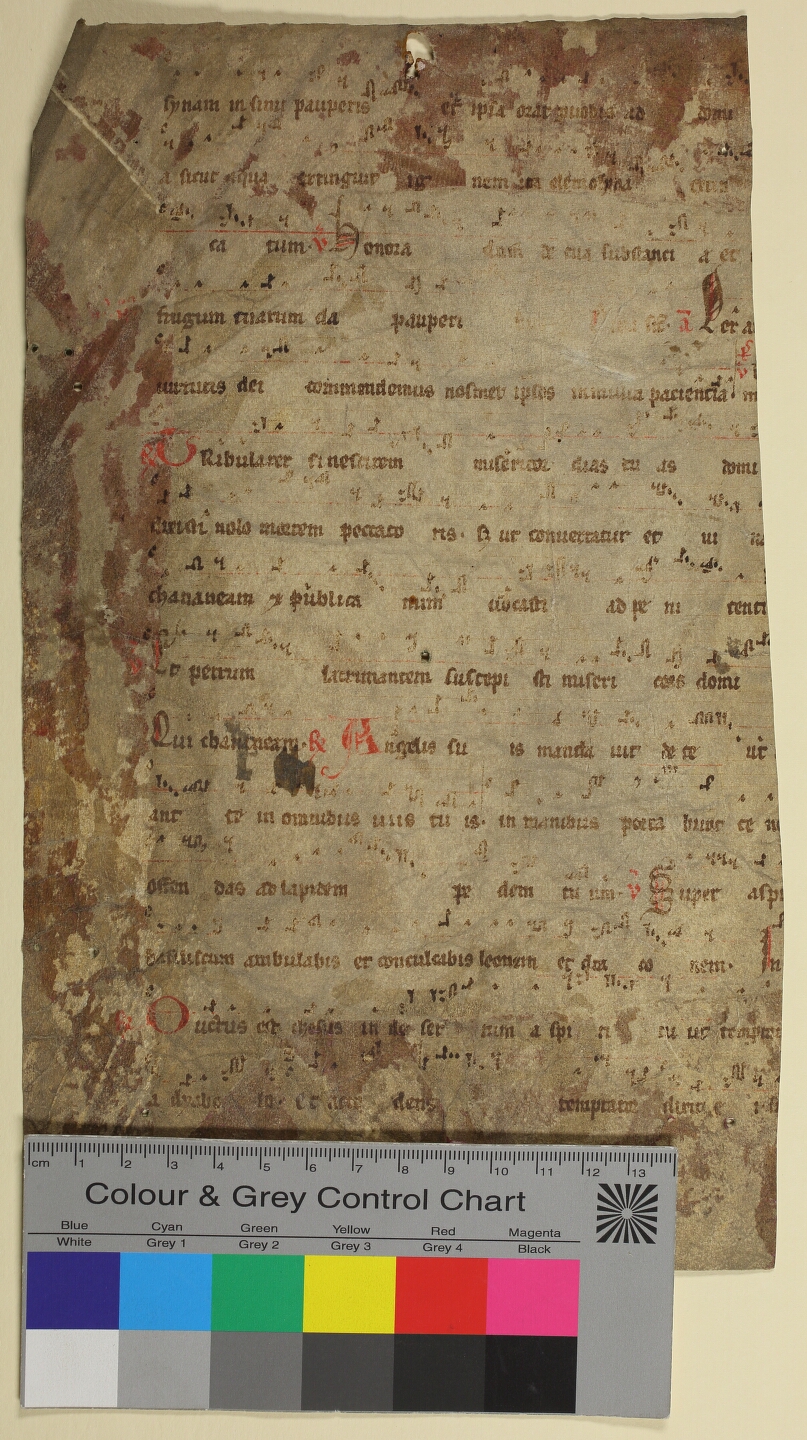 synam in sinu pauperis et ipsa orat pro vobis ad domi
a sicut aqua extinguit ig nem ita elemosina
ca tum. v Honora de tua substanci a et
frugum tuarum da pauperi Per a
virtutis dei commendemus nosmet ipsos in multa paciencia. m
TRibularer si nescirem misericor dias tu as domi
dixisti nolo mortem peccato ris. s ut convertatur et vi
chananeam & publica num vocasti ad pe ni tenti
Et petrum lacrimantem suscepi sti miseri cors domi
Qui chananeam. Angelis su is manda vit de te ut
ant te in omnibus viis tu is. in manibus porta bunt te
offen das ad lapidem pe dem tu um. v Super aspi
basiliscum ambulabis et conculcabis leonem et dra co nem. In
Ductus est ihesus in de ser tum a spi ri tu ut tempta
a dyabo lo. Et acce dens temptator dixit e
cm 1 2 3 4 5 6 7 8 9 10 11 12 13
Colour & Grey Control Chart
Blue Cyan Green Yellow Red Magenta
White Grey 1 Grey 2 Grey 3 Grey 4 Black